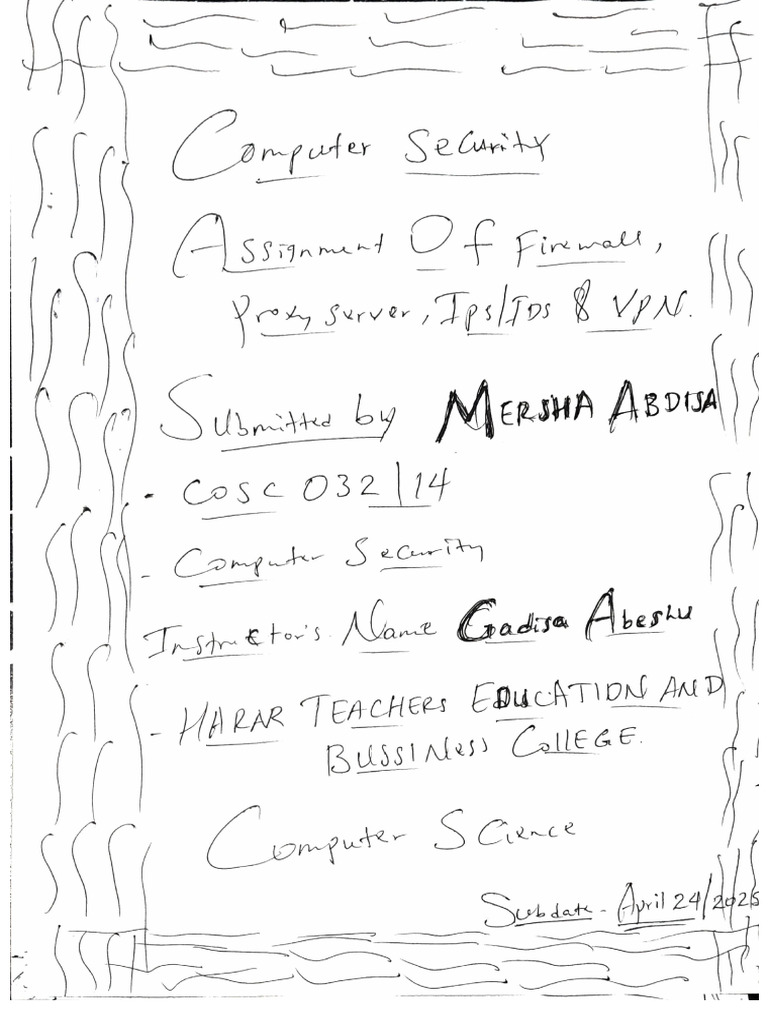 Computer Security
Assignment Of Firewall,
Proxy server, Ips/IDs & VPN.
Submitted by MERSHA ABDISA
- COSC 032/14
- Computer Security
Instructor's Name Gadisa Abeshu
- HARAR TEACHERS EDUCATION AND
BUSSINess COLLEGE.
Computer SCience
Subdate - April 24/2025